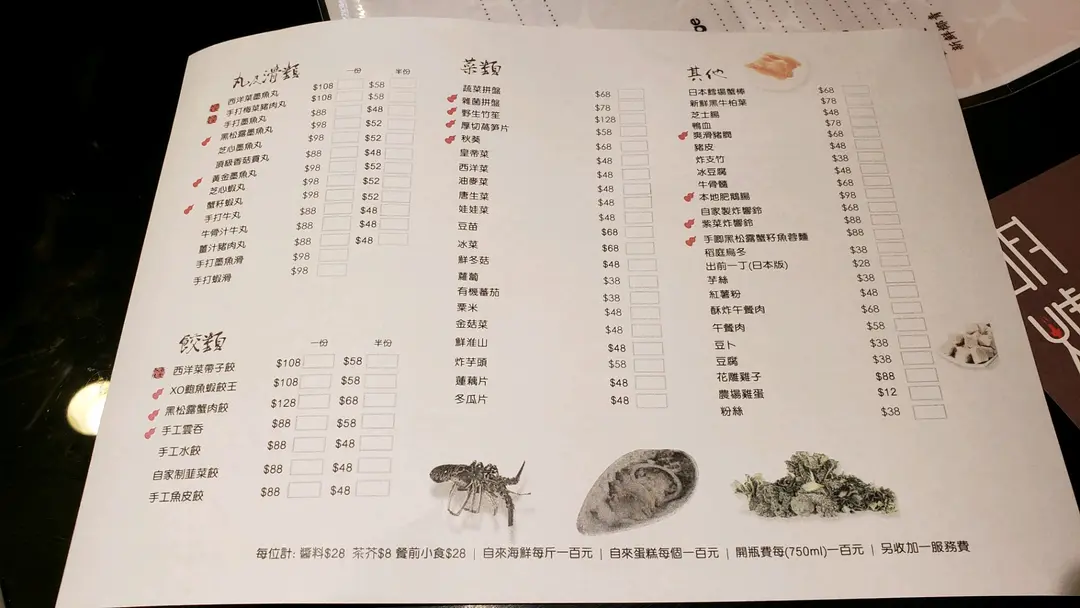 丸及滑類 一份 半份
西洋菜墨魚丸 $108 $58
手打梅菜豬肉丸 $108 $58
手打墨魚丸 $88 $48
黑松露墨魚丸 $98 $52
芝心墨魚丸 $98 $52
頂級香菇貢丸 $88 $48
黃金墨魚丸 $98 $52
芝心蝦丸 $98 $52
蟹籽蝦丸 $98 $52
手打牛丸 $88 $48
牛骨汁牛丸 $88 $48
薑汁豬肉丸 $88 $48
手打墨魚滑 $98
手打蝦滑 $98
餃類 一份 半份
西洋菜帶子餃 $108 $58
XO鮑魚蝦餃王 $108 $58
黑松露蟹肉餃 $128 $68
手工雲吞 $88 $58
手工水餃 $88 $48
自家制韭菜餃 $88 $48
手工魚皮餃 $88 $48
菜類
蔬菜拼盤 $68
雜菌拼盤 $78
野生竹笙 $128
厚切萵筍片 $58
秋葵 $68
皇帝菜 $48
西洋菜 $48
油麥菜 $48
唐生菜 $48
娃娃菜 $48
豆苗 $68
冰菜 $68
鮮冬菇 $48
蘿蔔 $38
有機蕃茄 $38
粟米 $48
金菇菜 $48
鮮淮山 $48
炸芋頭 $58
蓮藕片 $48
冬瓜片 $48
其他
日本鱈場蟹棒 $68
新鮮黑牛柏葉 $78
芝士腸 $48
鴨血 $78
爽滑豬膶 $68
豬皮 $48
炸支竹 $38
冰豆腐 $48
牛骨髓 $68
本地肥鵝腸 $98
自家製炸響鈴 $68
紫菜炸響鈴 $88
手唧黑松露蟹籽魚蓉麵 $88
稻庭烏冬 $38
出前一丁(日本版) $28
芋絲 $38
紅薯粉 $48
酥炸午餐肉 $68
午餐肉 $58
豆卜 $38
豆腐 $38
花雕雞子 $88
農場雞蛋 $12
粉絲 $38
每位計: 醬料$28 茶芥$8 餐前小食$28 | 自來海鮮每斤一百元 | 自來蛋糕每個一百元 | 開瓶費每(750ml)一百元 | 另收加一服務費